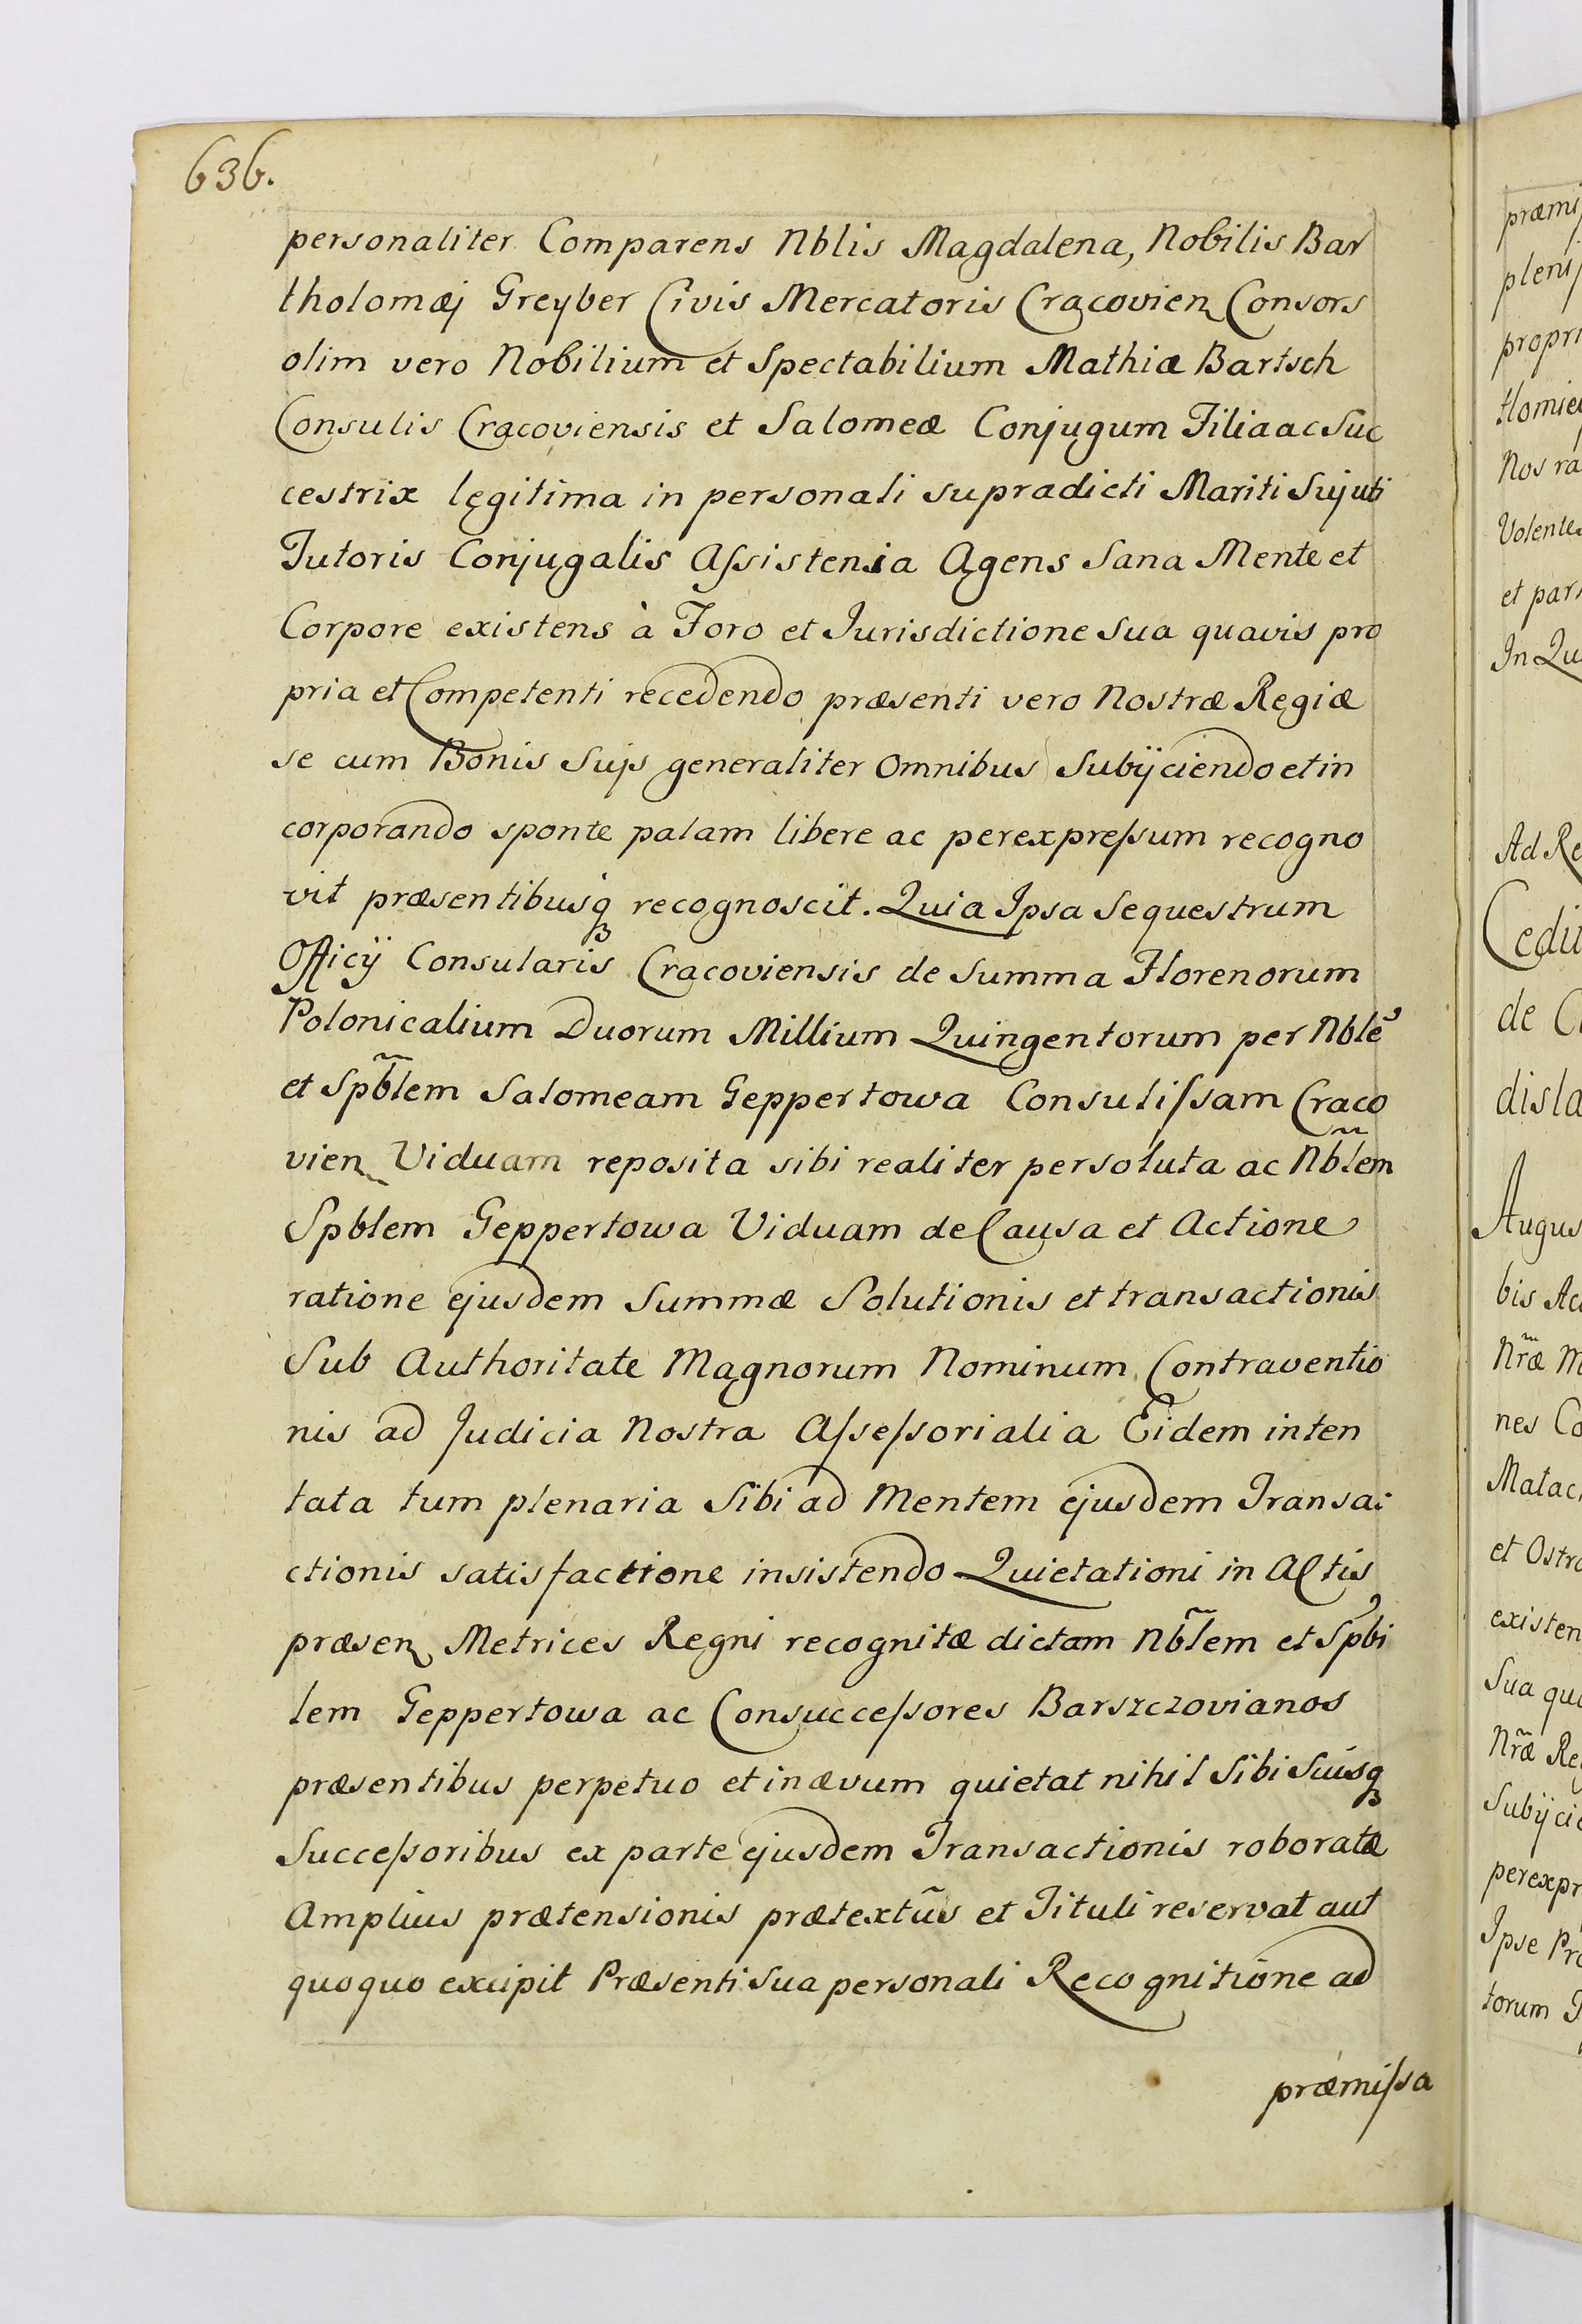 636.
personaliter Comparens Nblis Magdalena, Nobilis Bar
tholomæj Greyber Civis Mercatoris Cracovien Consors
olim vero Nobilium et Spectabilium Mathiæ Bartsch
Consulis Cracoviensis et Salomeæ Conjugum Filia ac Suc
cestrix legitima in personali supradicti Mariti Sui uti
Tutoris Conjugalis Aſsistensia Agens Sana Mente et
Corpore existens à Foro et Jurisdictione Sua quavis pro
pria et Competenti recedendo præsenti vero Nostræ Regiæ
se cum Bonis Sujs generaliter Omnibus Subijciendo et in
corporando sponte palam libere ac per expreſsum recogno
vit præsentibusq̃ recognoscit. Quia Ipsa Sequestrum
Officÿ Consularis Cracoviensis de Summa Florenorum
Polonicalium Duorum Millium Quingentorum per Nble
et Spb̃lem Salomeam Geppertowa Consuliſsam Craco
vien Viduam reposita sibi realiter persoluta ac Nb̃lem
Spblem Geppertowa Viduam de Causa et Actione
ratione ejusdem Summæ Solutionis et transactionis
Sub Authoritate Magnorum Nominum Contraventio
nis ad Judicia Nostra Aſseſsorialia Eidem inten
tata tum plenaria Sibi ad Mentem ejusdem Transa
ctionis satisfactione insistendo Quietationi in Actis
præsen Metrices Regni recognitæ dictam Nb̃lem et Spbi
lem Geppertowa ac Consucceſsores Barszczovianos
præsentibus perpetuo et in ævum quietat nihil Sibi Suisq
Succeſsoribus ex parte ejusdem Transactionis roboratæ
Amplius prætensionis prætextũs et Tituli reservat aut
quoquo excipit Præsenti Sua personali Recognitione ad
præmiſsa
præmi
pleni
propri
Nos ra
Volentes
et par
In Qu
Ad Re
Cedit
de C
disla
Augus
bis Ac
Nræ̃ M
nes Co
Matac
et Ostro
existen
Sua qu
Nræ̃ Re
Subijcie
perexpr
Ipse Pr
torum